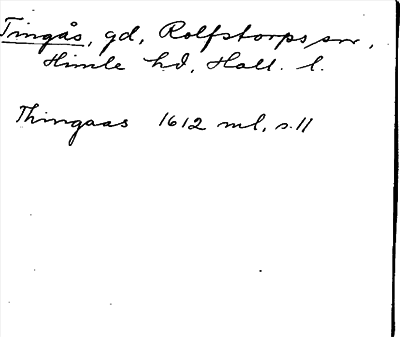 Tingås, gd, Rolfstorps sn,
Himle hd, Hall. l.
Thingaas 1612 ml, s. 11